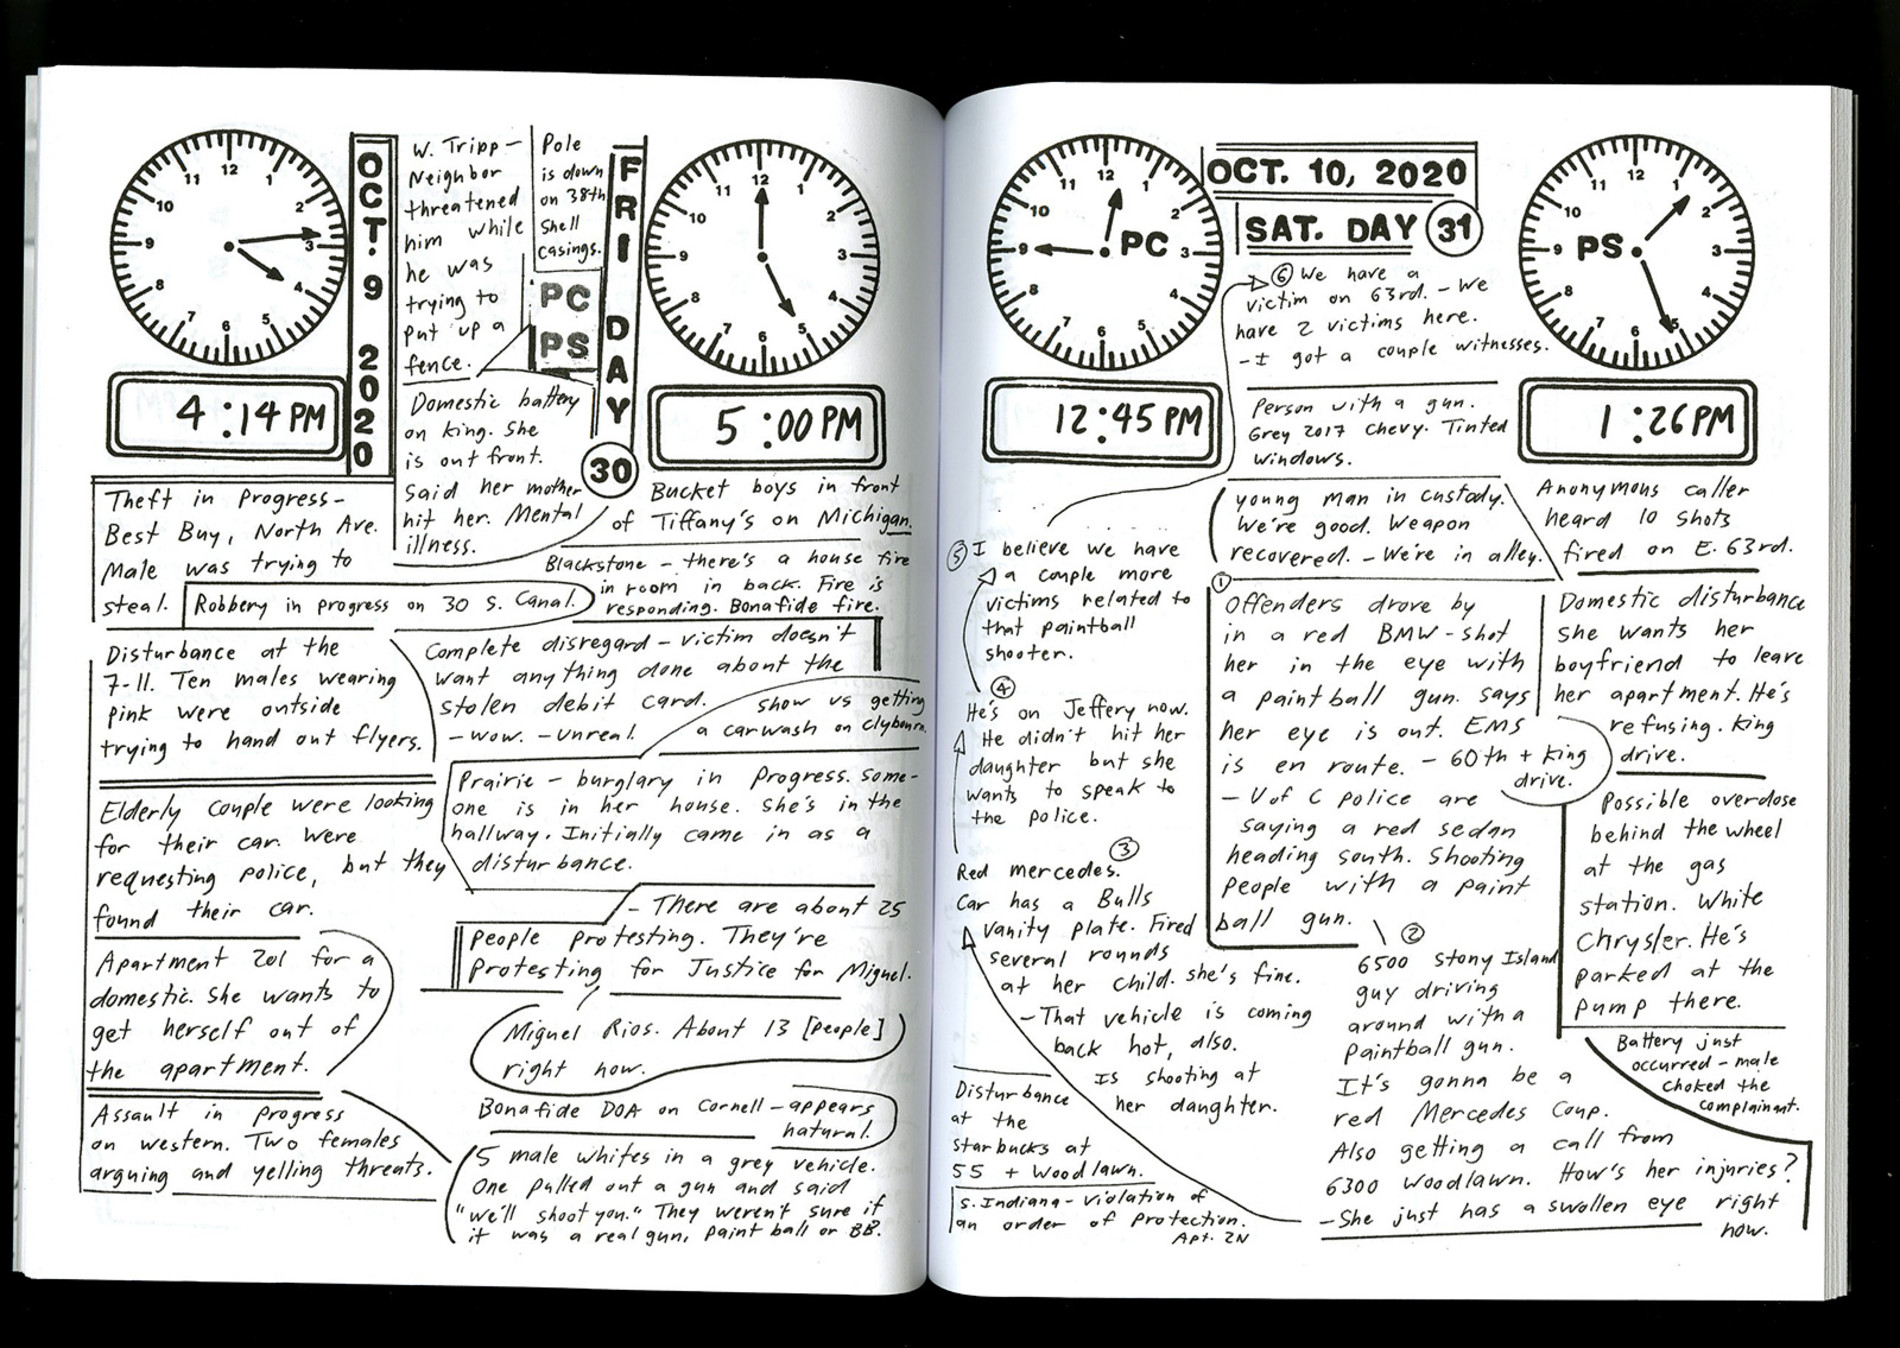 12
1
2
3
4
5
6
7
8
9
10
11
4:14 PM
OCT. 9 2020
W. Tripp –
Neighbor
threatened
him while
he was
trying to
put up a
fence.
Pole
is down
on 38th
Shell
casings.
PC
PS
FRIDAY
30
12
1
2
3
4
5
6
7
8
9
10
11
5:00 PM
Domestic battery
on King. She
is out front.
Said her mother
hit her. Mental
illness.
Theft in progress –
Best Buy, North Ave.
Male was trying to
steal.
Robbery in progress on 30 S. Canal.
Disturbance at the
7-11. Ten males wearing
pink were outside
trying to hand out flyers.
Elderly couple were looking
for their car. Were
requesting police, but they
found their car.
Apartment 201 for a
domestic. She wants to
get herself out of
the apartment.
Assault in progress
on western. Two females
arguing and yelling threats.
Bucket boys in front
of Tiffany's on Michigan.
Blackstone – there's a house fire
in room in back. Fire is
responding. Bonafide fire.
Complete disregard – victim doesn't
want anything done about the
stolen debit card.
– wow. – unreal.
show us getting
a carwash on Clybourn.
Prairie – burglary in progress. Some-
one is in her house. She's in the
hallway. Initially came in as a
disturbance.
– There are about 25
people protesting. They're
protesting for Justice for Miguel.
Miguel Rios. About 13 [people]
right now.
Bonafide DOA on Cornell – appears
natural.
5 male whites in a grey vehicle.
One pulled out a gun and said
"we'll shoot you." They weren't sure if
it was a real gun, paint ball or BB.
12
1
2
3
4
5
6
7
8
9
10
11
PC
12:45 PM
OCT. 10, 2020
SAT. DAY 31
12
1
2
3
4
5
6
7
8
9
10
11
PS
1:26 PM
⑥ We have a
victim on 63rd. – We
have 2 victims here.
– I got a couple witnesses.
Person with a gun.
Grey 2017 Chevy. Tinted
windows.
young man in custody.
We're good. Weapon
recovered. – We're in alley.
Anonymous caller
heard 10 shots
fired on E. 63rd.
⑤ I believe we have
a couple more
victims related to
that paintball
shooter.
④
He's on Jeffery now.
He didn't hit her
daughter but she
wants to speak to
the police.
③
Red mercedes.
Car has a Bulls
vanity plate. Fired
several rounds
at her child. She's fine.
– That vehicle is coming
back hot, also.
Is shooting at
her daughter.
Disturbance
at the
Starbucks at
55 + Woodlawn.
S. Indiana – violation of
an order of protection.
Apt. 2N
①
Offenders drove by
in a red BMW – shot
her in the eye with
a paintball gun. Says
her eye is out. EMS
is en route. – 60th + King
drive.
– U of C police are
saying a red sedan
heading south. Shooting
people with a paint
ball gun.
②
6500 Stony Island
guy driving
around with a
paintball gun.
It's gonna be a
red Mercedes Coup.
Also getting a call from
6300 Woodlawn. How's her injuries?
– She just has a swollen eye right
now.
Domestic disturbance
She wants her
boyfriend to leave
her apartment. He's
refusing. King
drive.
Possible overdose
behind the wheel
at the gas
station. White
Chrysler. He's
parked at the
pump there.
Battery just
occurred – male
choked the
complainant.